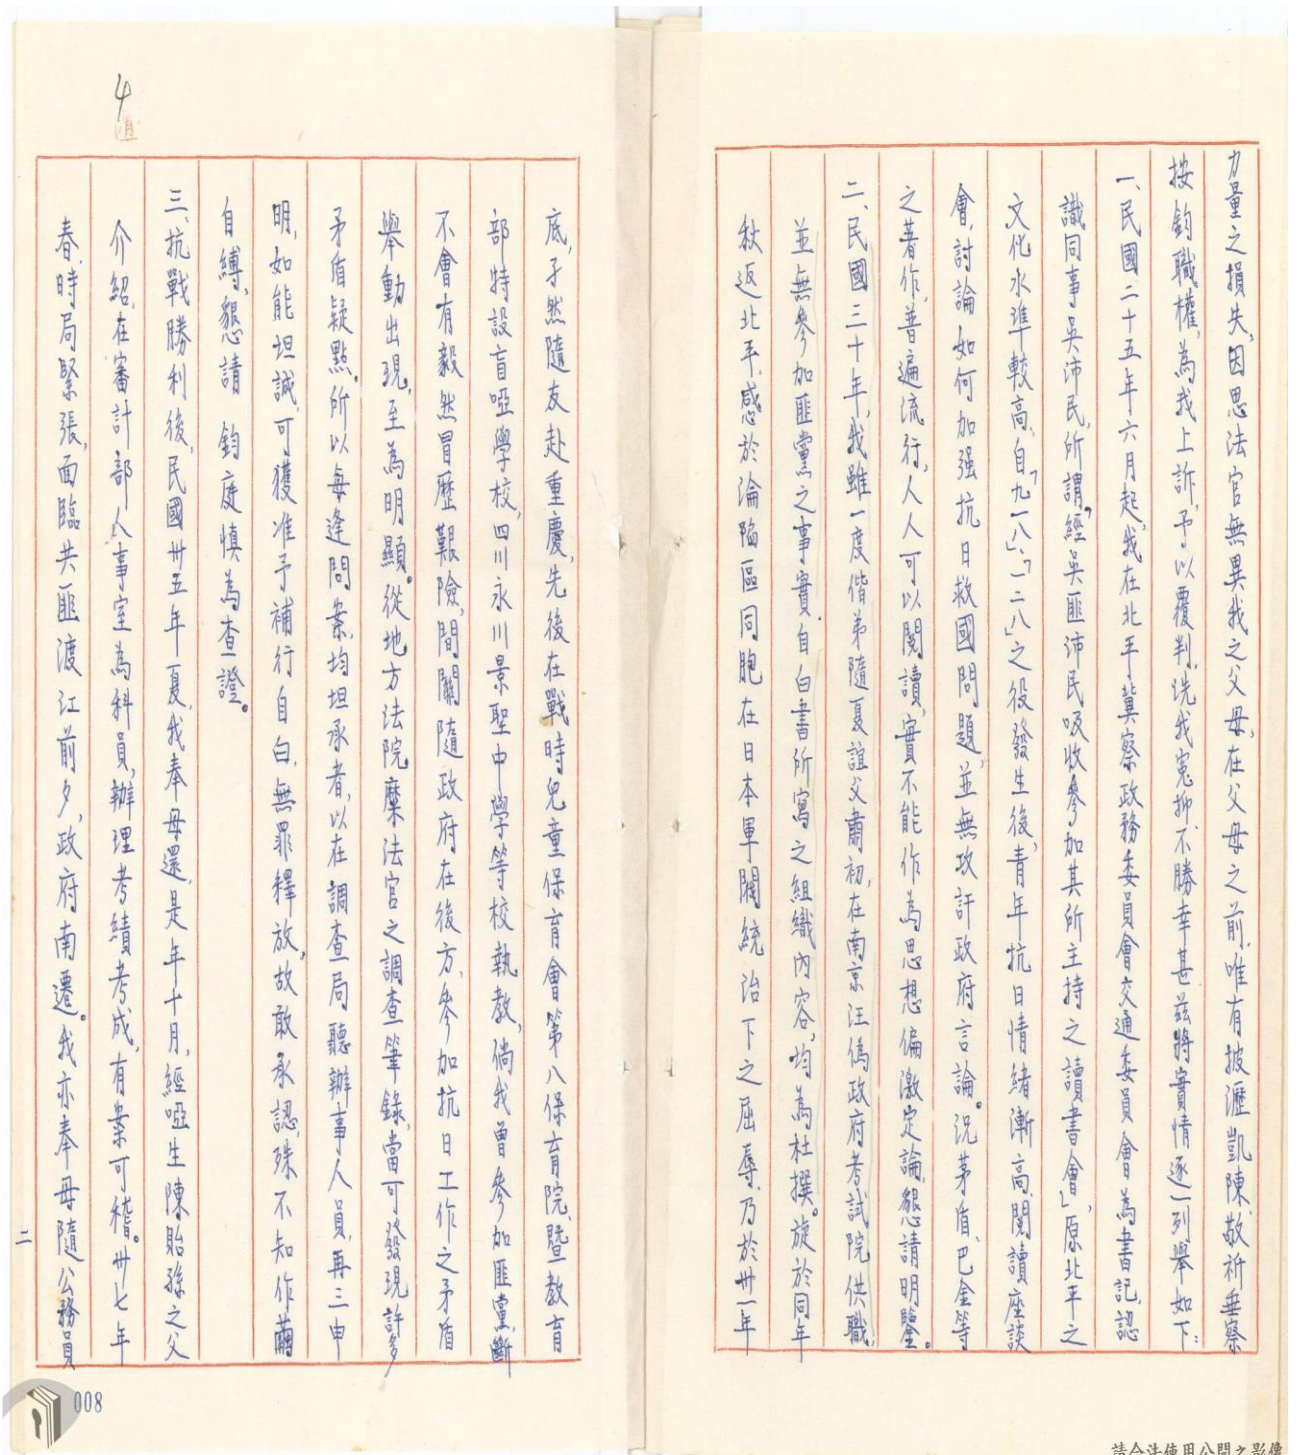 力量之損失,因思法官無異我之父母,在父母之前,唯有披瀝凱陳,敬祈垂察
按鈞職權,為我上訴,予以覆判,洗我寃抑,不勝幸甚,茲將實情逐一列舉如下:
一、民國二十五年六月起,我在北平冀察政務委員會交通委員會為書記,認
識同事吳沛民,所謂「經吳匪沛民吸收參加其所主持之讀書會」,原北平之
文化水準較高,自「九一八」、「一二八」之役發生後,青年抗日情緒漸高,閱讀座談
會,討論如何加强抗日救國問題,並無攻訐政府言論。況茅盾、巴金等
之著作,普遍流行,人人可以閱讀,實不能作為思想偏激定論,懇請明鑒。
二、民國三十年,我雖一度偕弟隨夏誼父肅初,在南京汪偽政府考試院供職,
並無參加匪黨之事實,自白書所寫之組織內容,均為杜撰。旋於同年
秋返北平,感於淪陷區同胞在日本軍閥統治下之屈辱,乃於卅一年
底,孑然隨友赴重慶,先後在戰時兒童保育會第八保育院,暨教育
部特設盲啞學校,四川永川景聖中學等校執教,倘我曾參加匪黨,斷
不會有毅然冒歷艱險,間關隨政府在後方,參加抗日工作之矛盾
舉動出現,至為明顯。從地方法院麋法官之調查筆錄,當可發現許多
矛盾疑點。所以每逢問案,均坦承者,以在調查局聽辦事人員,再三申
明,如能坦誠,可獲准予補行自白,無罪釋放,故敢承認,殊不知作繭
自縛,懇請 鈞庭慎為查證。
三、抗戰勝利後,民國卅五年夏,我奉母還,是年十月,經啞生陳貽孫之父
介紹,在審計部人事室為科員,辦理考績考成,有案可稽。卅七年
春,時局緊張,面臨共匪渡江前夕,政府南遷。我亦奉母隨公務員
二
4
008
請合法使用公開之影像